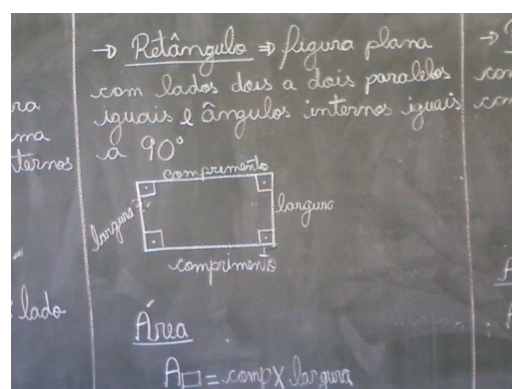 → Retângulo ⇒ figura plana
com lados dois a dois paralelos
iguais e ângulos internos iguais
a 90°
comprimento
largura
largura
comprimento
Área
A▭ = comp X largura
ternos
lado